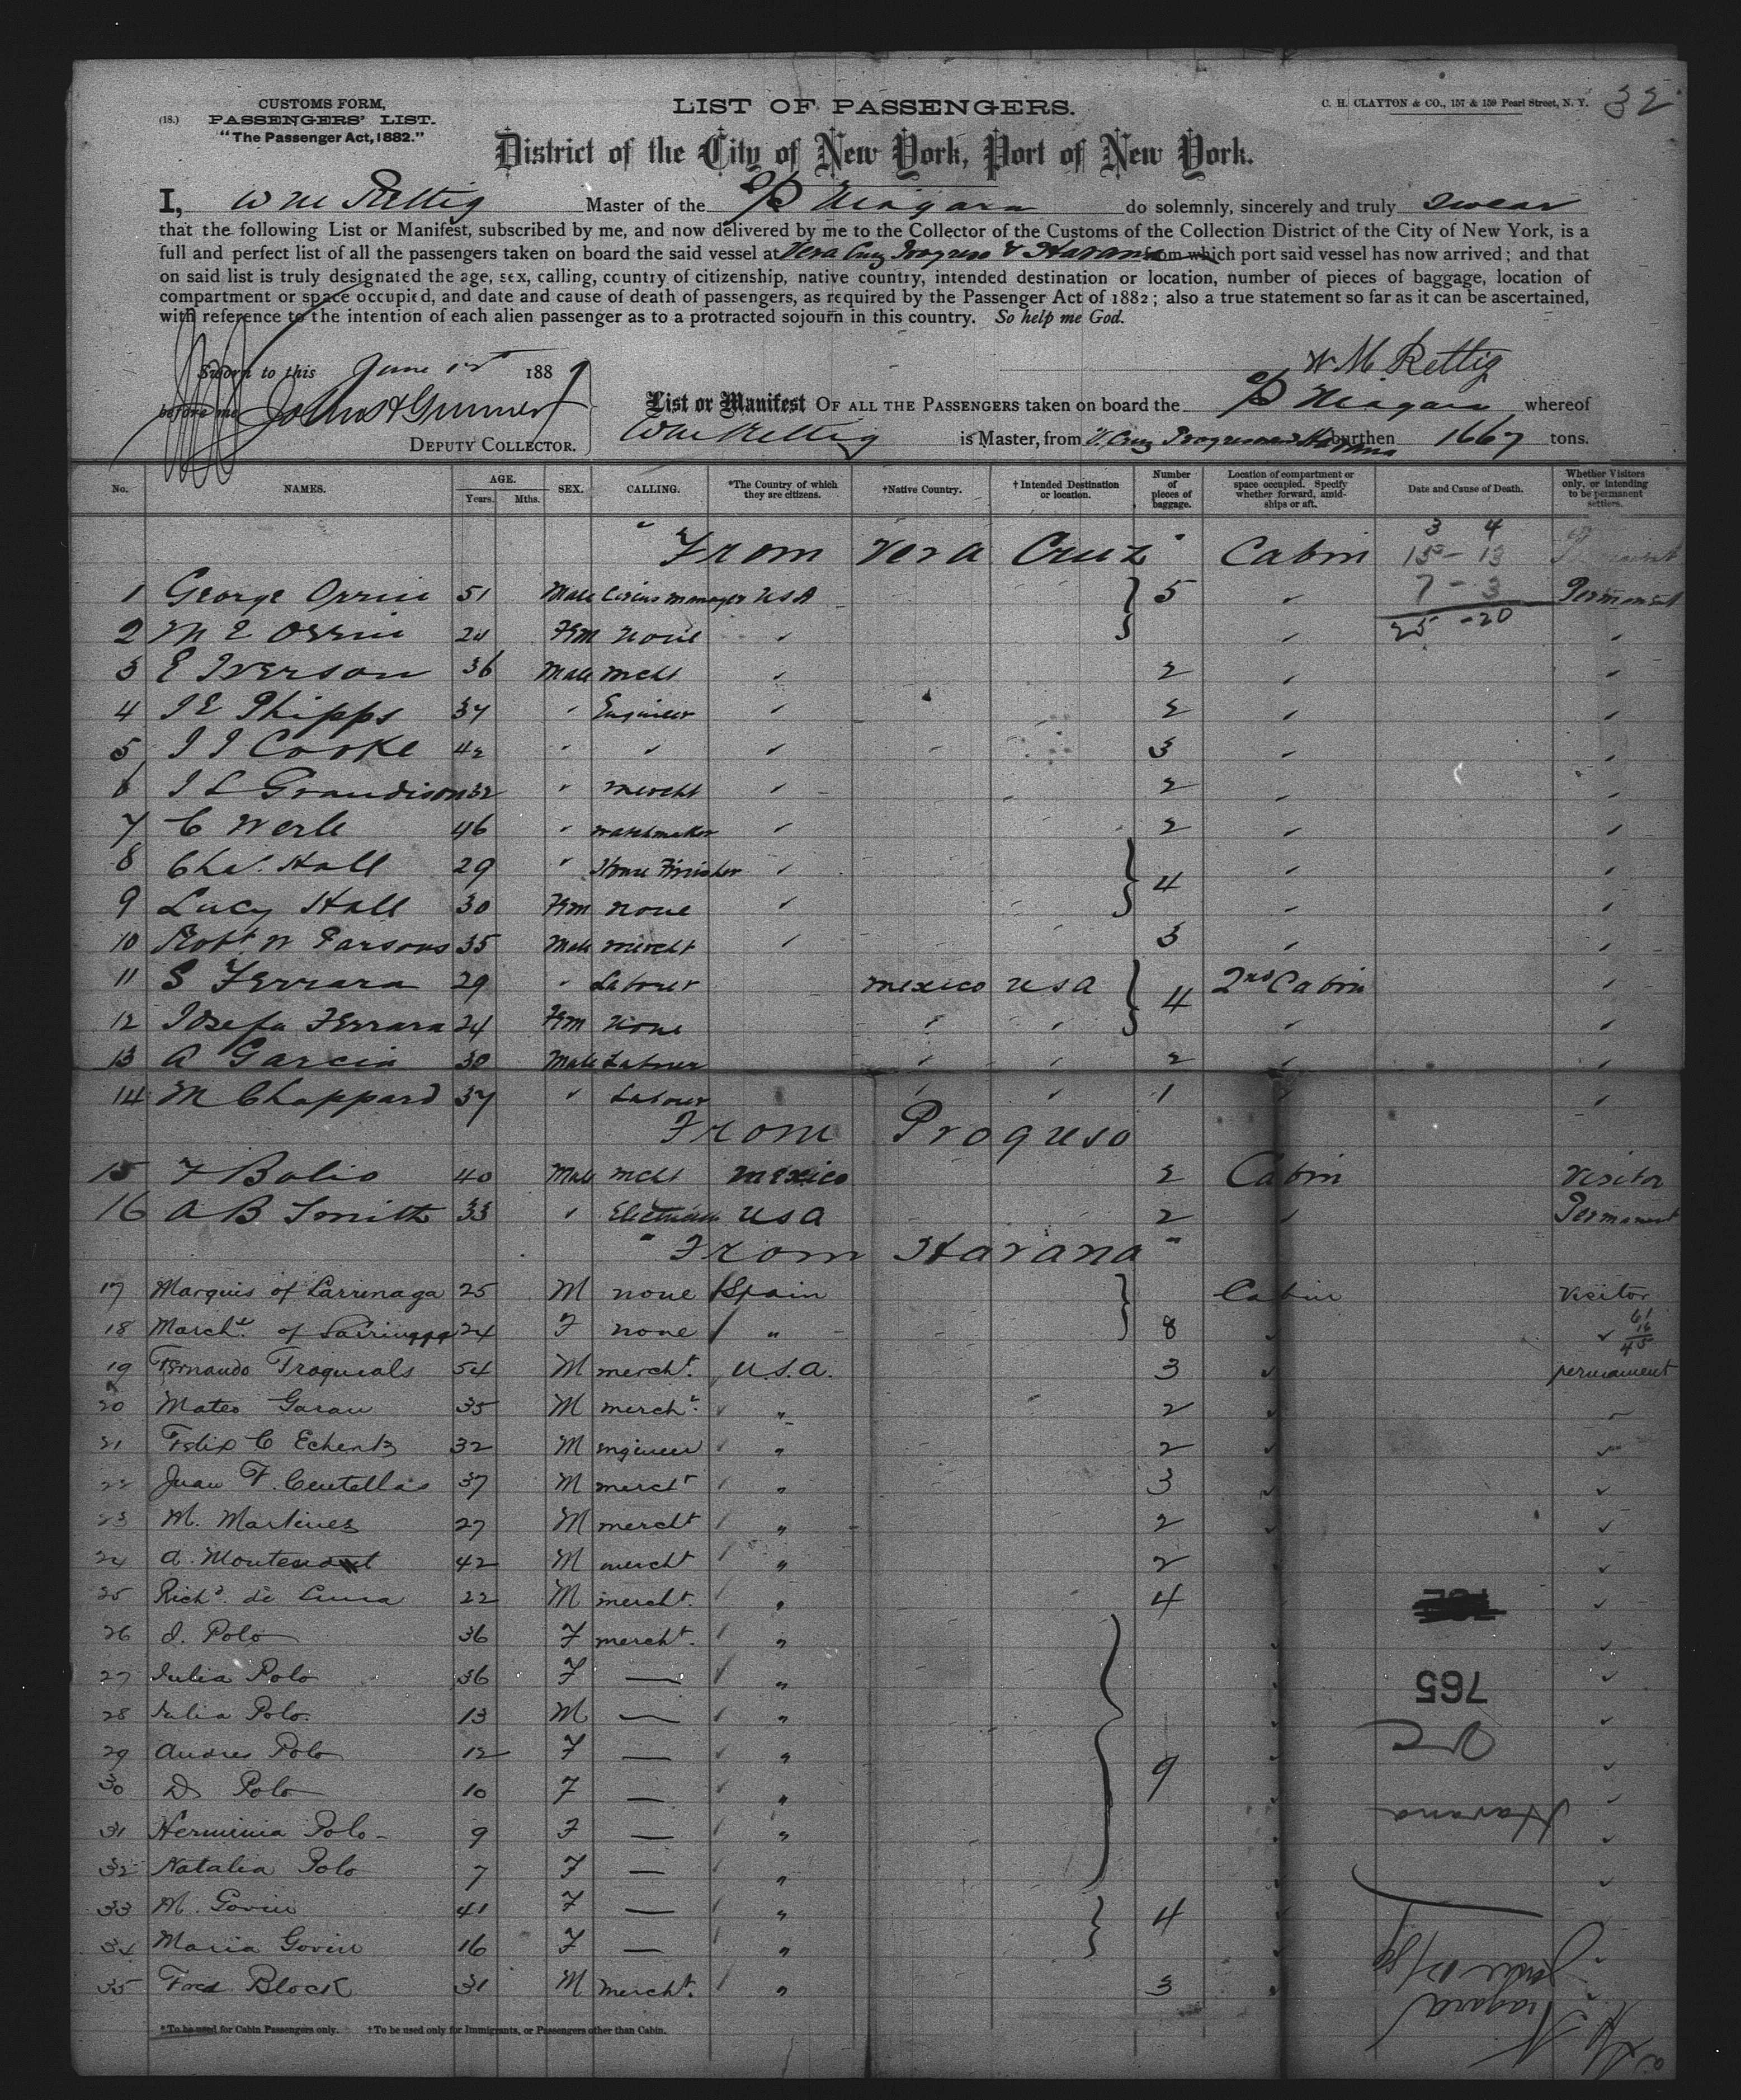 32
(18.) CUSTOMS FORM,
PASSENGERS' LIST.
"The Passenger Act, 1882."
LIST OF PASSENGERS.
C. H. CLAYTON & CO., 157 & 159 Pearl Street, N. Y.
District of the City of New York, Port of New York.
I, W M Rettig Master of the S/S Niagara do solemnly, sincerely and truly swear
that the following List or Manifest, subscribed by me, and now delivered by me to the Collector of the Customs of the Collection District of the City of New York, is a
full and perfect list of all the passengers taken on board the said vessel at Vera Cruz Progreso & Havana from which port said vessel has now arrived; and that
on said list is truly designated the age, sex, calling, country of citizenship, native country, intended destination or location, number of pieces of baggage, location of
compartment or space occupied, and date and cause of death of passengers, as required by the Passenger Act of 1882; also a true statement so far as it can be ascertained,
with reference to the intention of each alien passenger as to a protracted sojourn in this country. So help me God.
W M Rettig
Sworn to this June 188
before me
DEPUTY COLLECTOR.
List or Manifest OF ALL THE PASSENGERS taken on board the S/S Niagara whereof
Wm Rettig is Master, from V. Cruz Progreso and Havana burthen 1667 tons.
No. NAMES. AGE. Years. Mths. SEX. CALLING. *The Country of which they are citizens. †Native Country. †Intended Destination or location. Number of pieces of baggage. Location of compartment or space occupied. Specify whether forward, amidships or aft. Date and Cause of Death. Whether Visitors only, or intending to be permanent settlers.
"From Vera Cruz" Cabin 3 4
15 - 13
7 - 3
25 - 20
1 George Orrin 51 Male Circus manager USA } 5 " Permanent
2 M E Orrin 24 Fem none " " "
3 E Iverson 36 Male mcht " 2 " "
4 J E Phipps 37 " Engineer " 2 " "
5 J J Cooke 42 " " " 3 " "
6 J L Grandison 32 " mercht " 2 " "
7 C Werle 46 " watchmaker " 2 " "
8 Chs. Hall 29 " House Finisher " } 4 " "
9 Lucy Hall 30 Fem none " " "
10 Robt W Parsons 35 Male mercht " 3 " "
11 S Ferrara 29 " Labourer mexico USA } 4 2nd Cabin "
12 Josefa Ferrara 24 Fem none " " " "
13 A Garcia 30 Male Labourer " " 2 " "
14 M Chappard 37 " Labourer " " 1 " "
From Progreso
15 F Bolio 40 Male mcht mexico 2 Cabin Visitor
16 A B Smith 33 " Electrician USA 2 " Permanent
"From Havana"
17 Marquis of Larrinaga 25 M none Spain } Cabin Visitor
18 March. of Larrinaga 24 F none " 8 " "
19 Fernando Troqueals 54 M mercht. U.S.A. 3 " permanent
20 Mateo Garau 35 M mercht. " 2 " "
21 Felix C 32 M engineer " 2 " "
22 Juan F. Centellas 37 M mercht " 3 " "
23 M. Martinez 27 M mercht " 2 " "
24 A. 42 M mercht " 2 " "
25 Richd. de Luna 22 M mercht. " 4 " "
26 J. Polo 36 F mercht. " } " "
27 Julia Polo 36 F — " " "
28 Julia Polo 13 M — " " "
29 Andres Polo 12 F — " " "
30 D Polo 10 F — " 9 " "
31 Herminia Polo 9 F — " " "
32 Natalia Polo 7 F — " " "
33 M. Govin 41 F — " } 4 " "
34 Maria Govin 16 F — " " "
35 Fred Block 31 M mercht. " 3 " "
61
16
45
765
Havana
Niagara
*To be used for Cabin Passengers only. †To be used only for Immigrants, or Passengers other than Cabin.